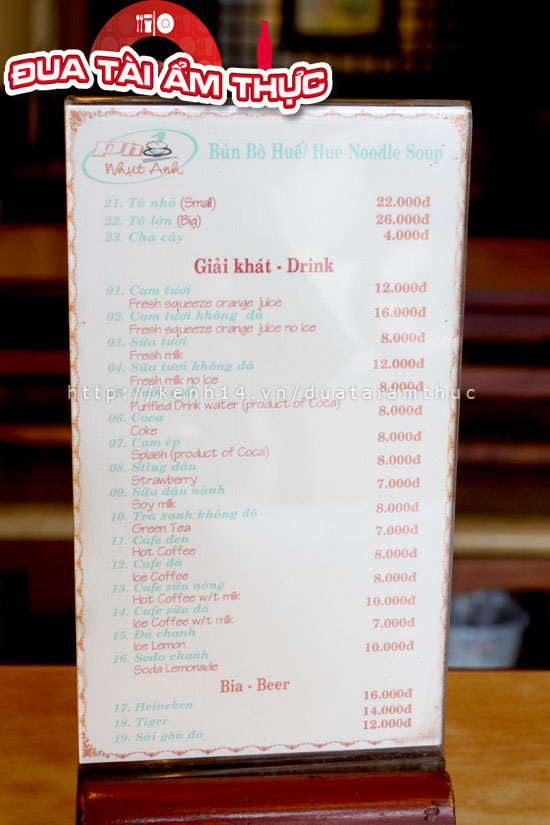 ĐUA TÀI ẨM THỰC
phở
Nhựt Anh
Bún Bò Huế/ Hue Noodle Soup
21. Tô nhỏ (Small) 22.000đ
22. Tô lớn (Big) 26.000đ
23. Chả cây 4.000đ
Giải khát - Drink
01. Cam tươi 12.000đ
Fresh squeeze orange juice
02. Cam tươi không đá 16.000đ
Fresh squeeze orange juice no ice
03. Sữa tươi 8.000đ
Fresh milk
04. Sữa tươi không đá 12.000đ
Fresh milk no ice
http://kenh14.vn/duataiamthuc
8.000đ
Purified Drink water (product of Coca)
06. Coca 8.000đ
Coke
07. Cam ép 8.000đ
Splash (product of Coca)
08. Sting dâu 8.000đ
Strawberry
09. Sữa đậu nành 7.000đ
Soy milk
10. Trà xanh không độ 8.000đ
Green Tea
11. Cafe đen 7.000đ
Hot Coffee
12. Cafe đá 8.000đ
Ice Coffee
13. Cafe sữa nóng 8.000đ
Hot Coffee w/t milk
14. Cafe sữa đá 10.000đ
Ice Coffee w/t milk
15. Đá chanh 7.000đ
Ice Lemon
16. Soda chanh 10.000đ
Soda Lemonade
Bia - Beer
17. Heineken 16.000đ
18. Tiger 14.000đ
19. Sài gòn đỏ 12.000đ